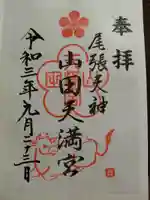 奉拝
尾張天神
山田天満宮
令和三年九月二十三日